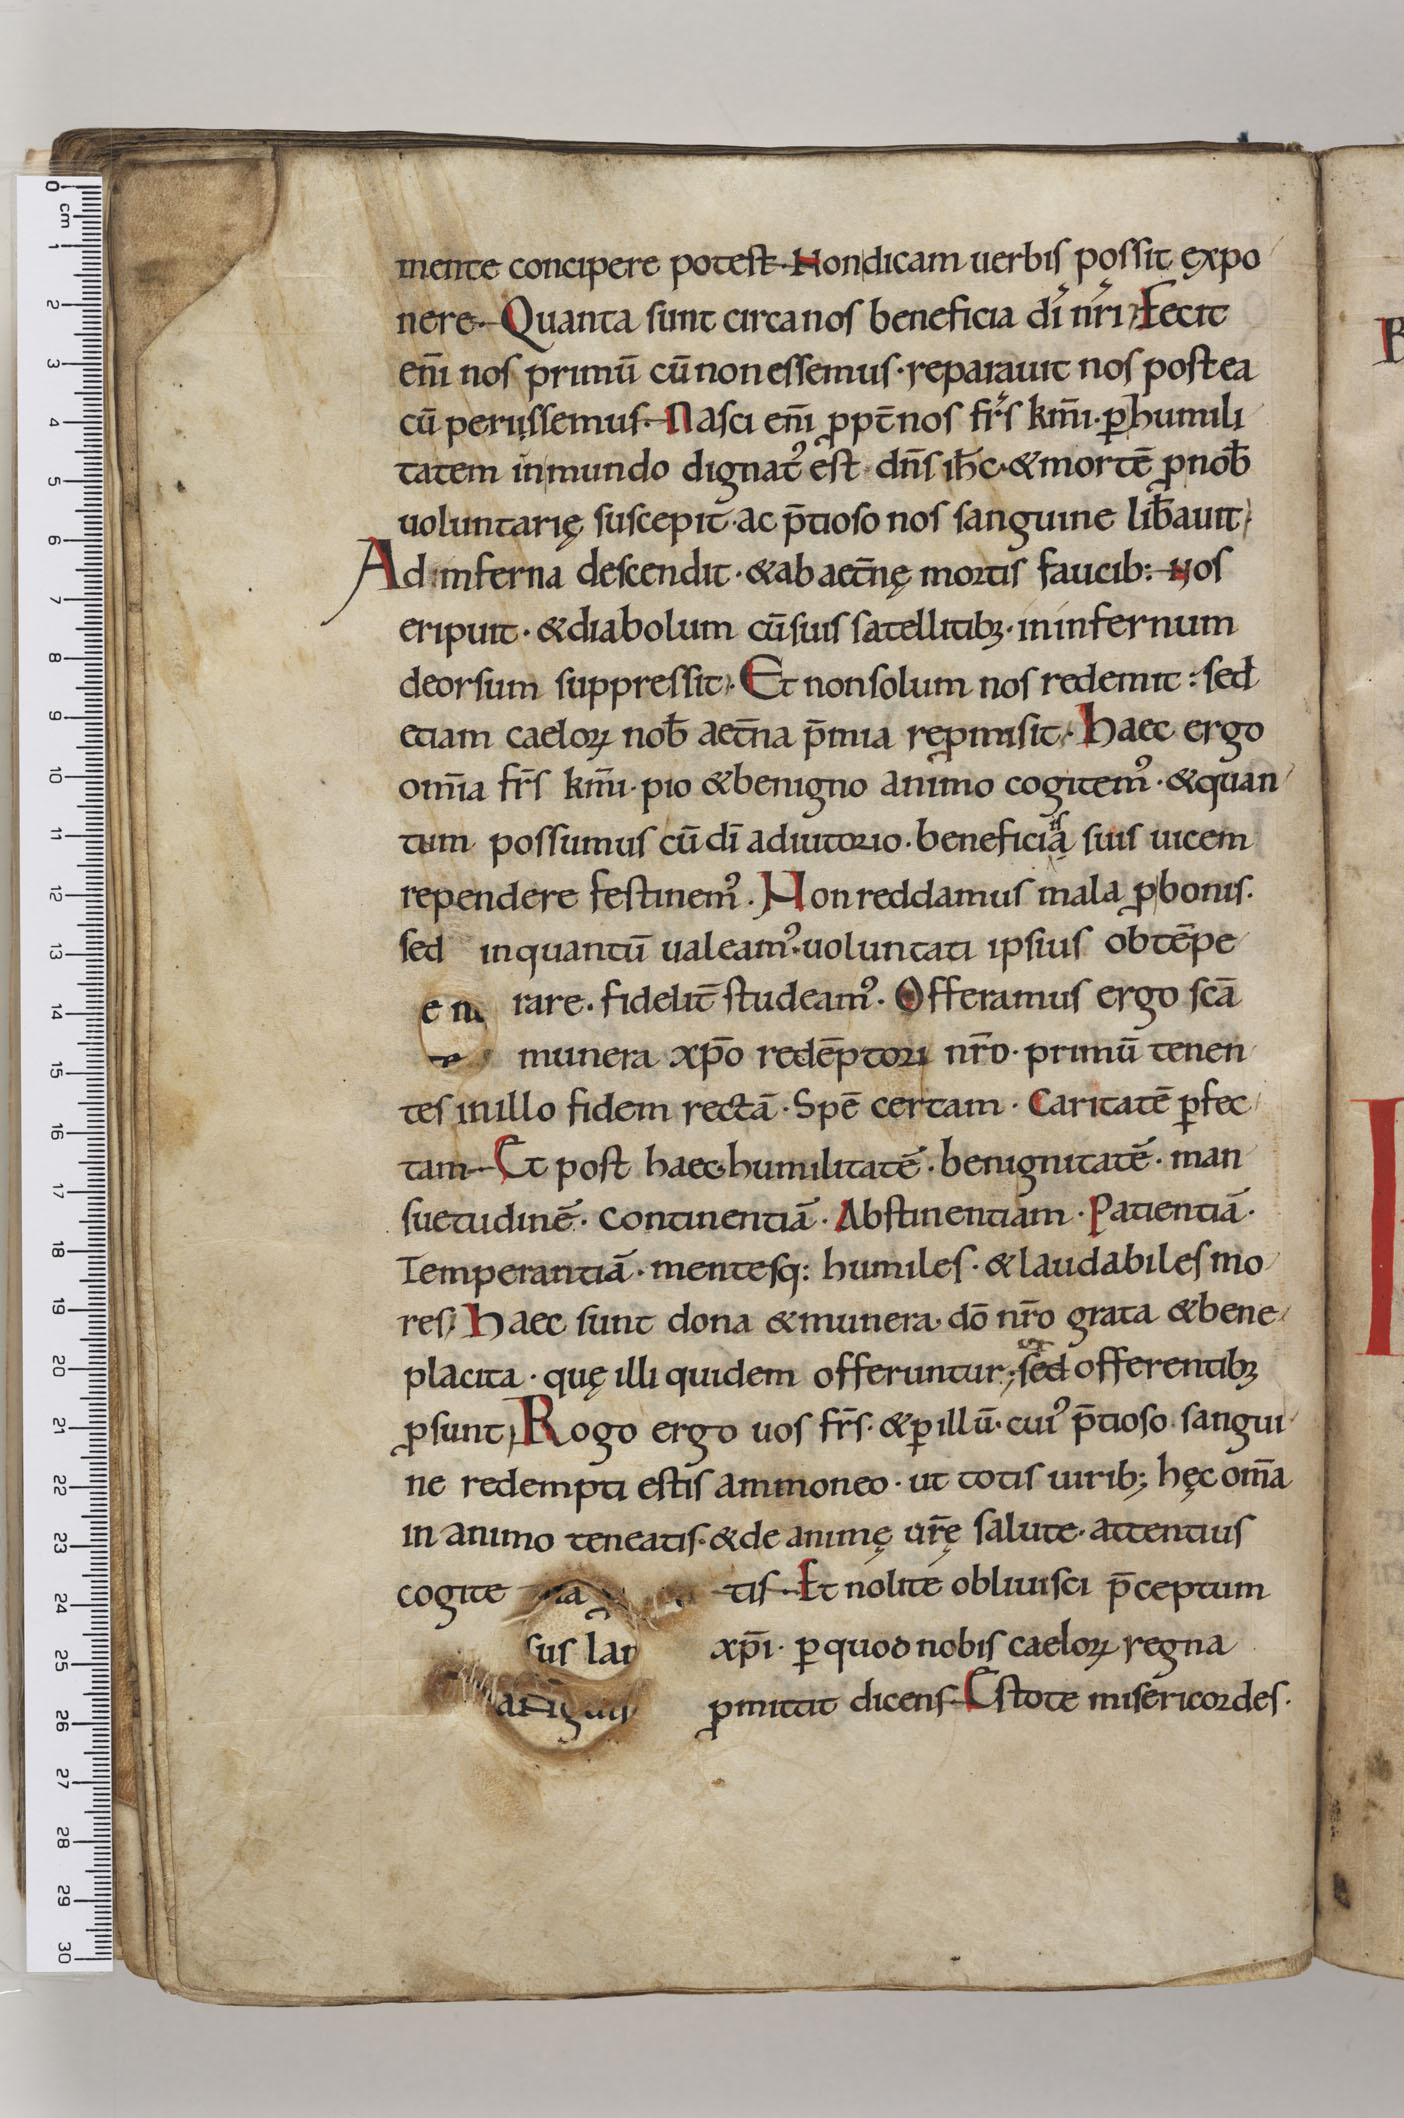 mente concipere potest. Non dicam uerbis possit expo
nere. Quanta sunt circa nos beneficia dī nr̄i. Fecit
en̄i nos primū cū non essemus. reparauit nos postea
cū periissemus. Nasci en̄i ꝓpt̄ nos fr̄s km̄i. ꝑ humili
tatem in mundo dignatꝰ est dn̄s ih̄c. & mortē ꝓ nob̄
uoluntarię suscepit. ac p̄tioso nos sanguine lib̄auit
Ad inferna descendit. & ab aet̄nę mortis faucib: nos
eripuit. & diabolum cū suis satellitibꝫ. in infernum
deorsum suppressit. Et non solum nos redemit: sed
etiam caeloꝝ nob̄ aet̄na p̄mia reꝓmisit. Haec ergo
om̄ia fr̄s km̄i. pio & benigno animo cogitemꝰ. & quan
tum possumus cū dī adiutorio. beneficiis suis uicem
rependere festinemꝰ. Non reddamus mala ꝓ bonis.
sed in quantū ualeamꝰ. uoluntati ipsius obtēpe
rare. fidelit̄ studeamꝰ. Offeramus ergo scā
munera xp̄o redēptori nr̄o. primū tenen
tes in illo fidem rectā. Spē certam. Caritatē ꝑfec
tam. Et post haec humilitatē. benignitatē. man
suetudinē. Continentiā. Abstinentiam. Patientiā.
Temperantiā. mentesq: humiles. & laudabiles mo
res. Haec sunt dona & munera dō nr̄o grata & bene
placita. quę illi quidem offeruntur; sed offerentibꝫ
ꝓsunt. Rogo ergo uos fr̄s. & ꝑ illū. cuiꝰ p̄tioso sangui
ne redempti estis ammoneo. ut totis uirib; hęc om̄a
in animo teneatis. & de animę ur̄ę salute. attentius
cogite tis. Et nolite obliuisci p̄ceptum
sus lau xp̄i. ꝑ quod nobis caeloꝝ regna
ꝓmittit dicens. Estote misericordes.